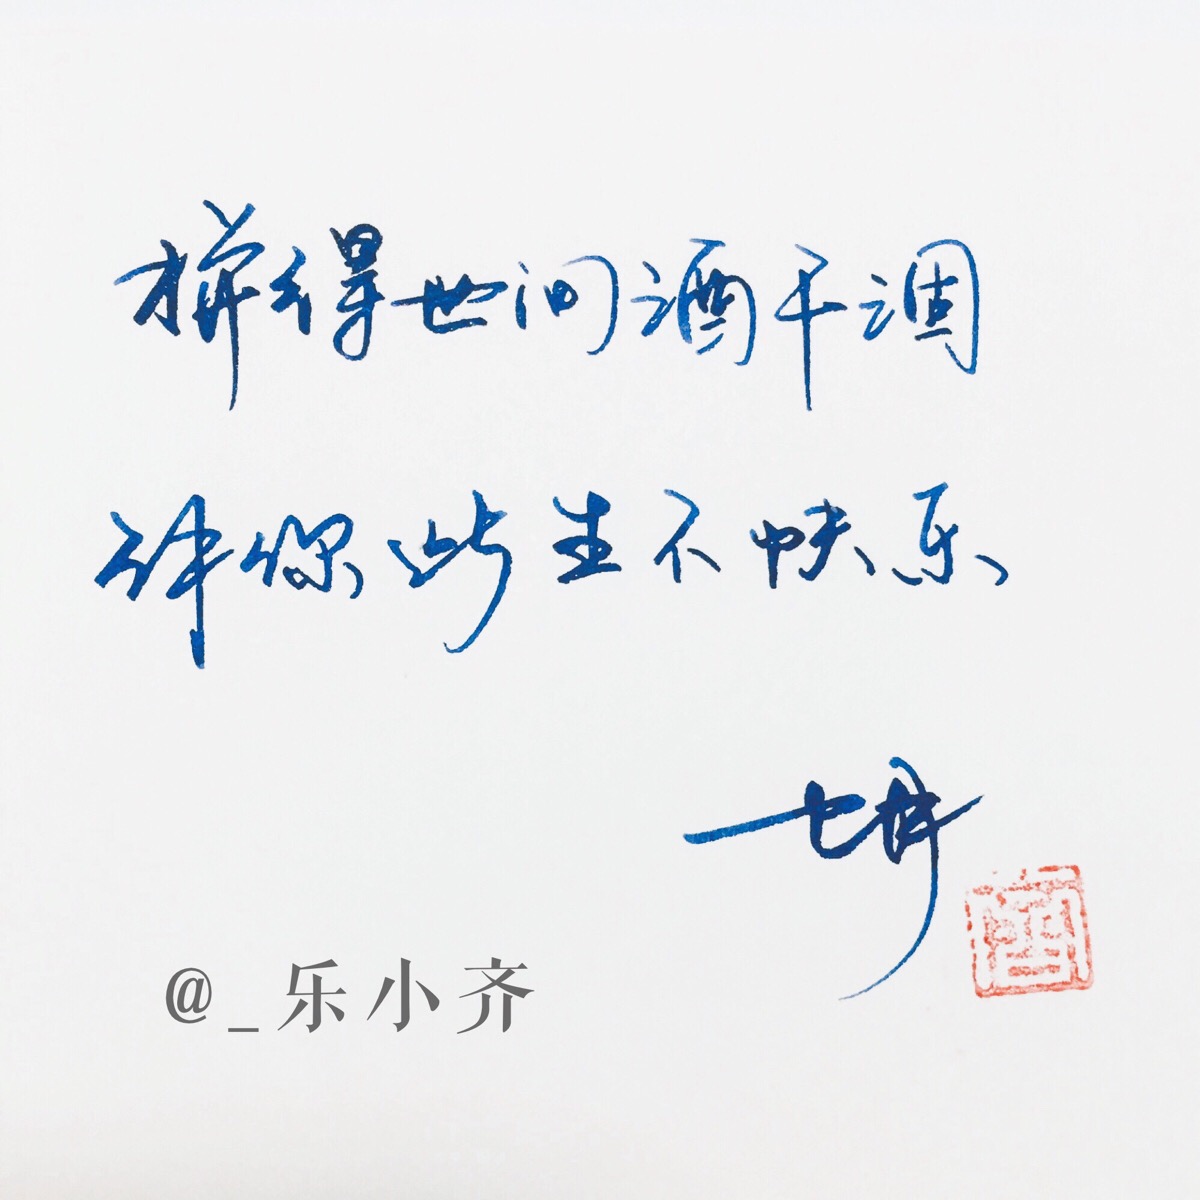 拼得世间酒干涸
许你此生不快乐
@_乐小齐